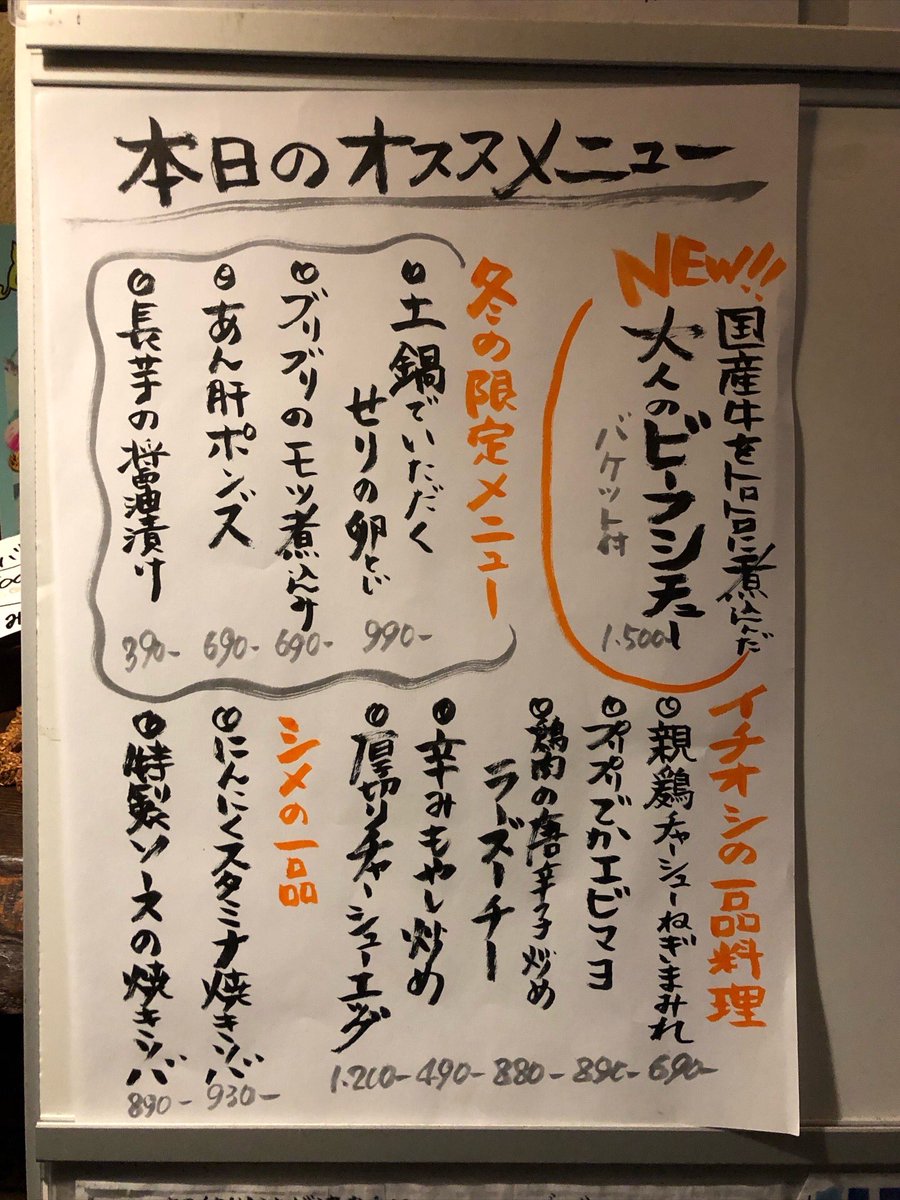 本日のオススメニュー
NEW!!
国産牛をトロトロに煮込んだ
大人のビーフシチュー
バケット付
1.500-
冬の限定メニュー
土鍋でいただく
せりの卵とじ
990-
ブリブリのモツ煮込み
690-
あん肝ポンズ
690-
長芋の醤油漬け
390-
イチオシの一品料理
親鶏チャーシューねぎまみれ
690-
プリプリでかエビマヨ
890-
鶏肉の唐辛子炒め
ラーズーチー
880-
辛みもやし炒め
490-
厚切りチャーシューエッグ
1.200-
シメの一品
にんにくスタミナ焼きソバ
930-
特製ソースの焼きソバ
890-